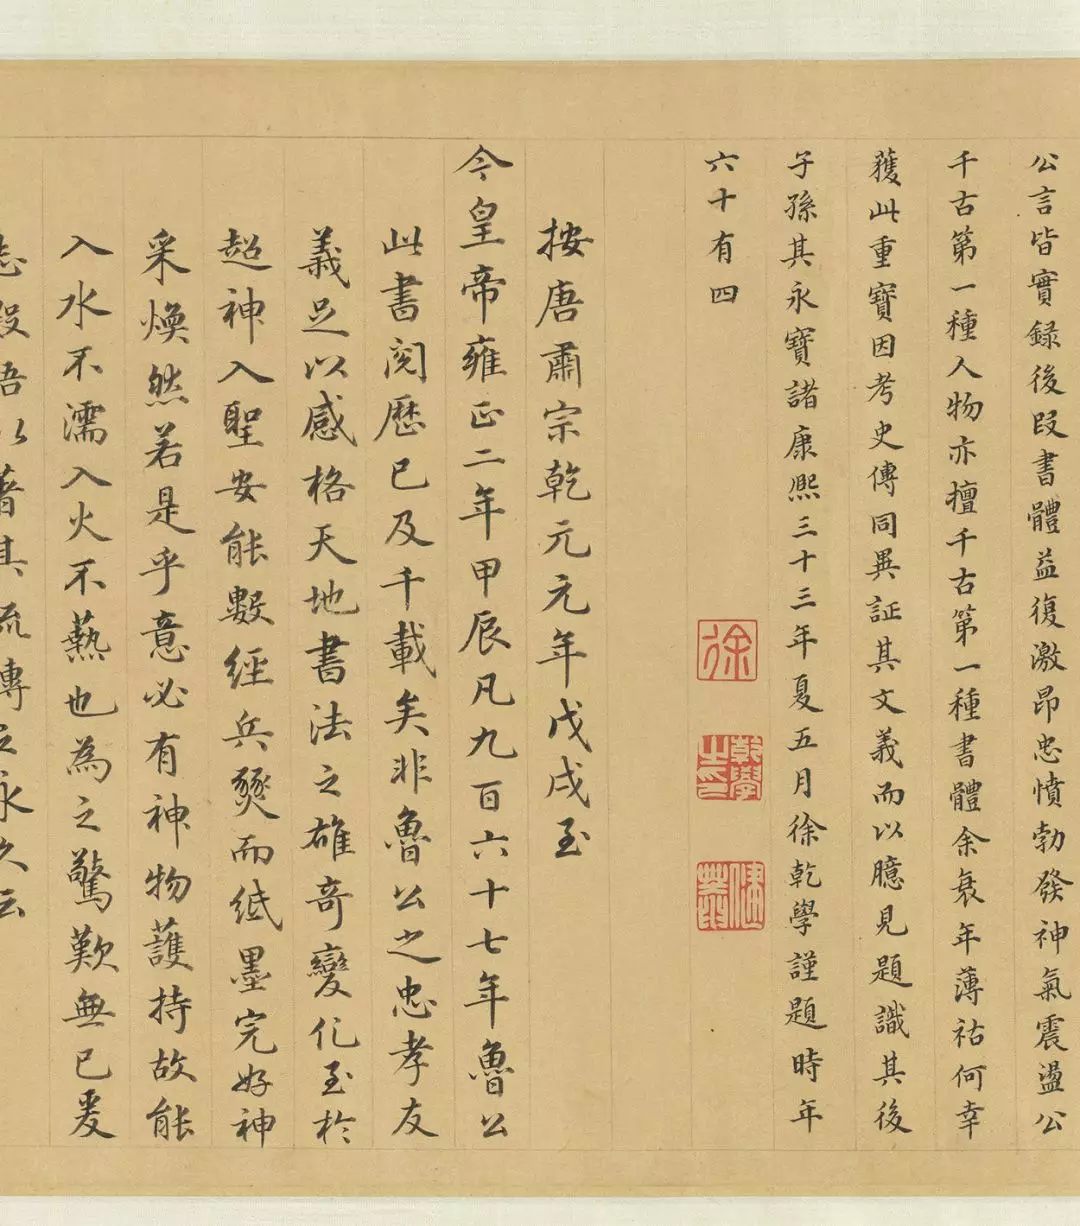 公言皆實錄後段書體益復激昂忠憤勃發神氣震盪公
千古第一種人物亦擅千古第一種書體余衰年薄祜何幸
獲此重寶因考史傳同異証其文義而以臆見題識其後
子孫其永寶諸康熙三十三年夏五月徐乾學謹題時年
六十有四
徐
乾學之印
健菴
按唐肅宗乾元元年戊戌至
今皇帝雍正二年甲辰凡九百六十七年魯公
此書閱歷已及千載矣非魯公之忠孝友
義足以感格天地書法之雄奇變化至於
超神入聖安能數經兵燹而紙墨完好神
采煥然若是乎意必有神物護持故能
入水不濡入火不爇也為之驚歎無已爰
志段語以著其流傳之永久云